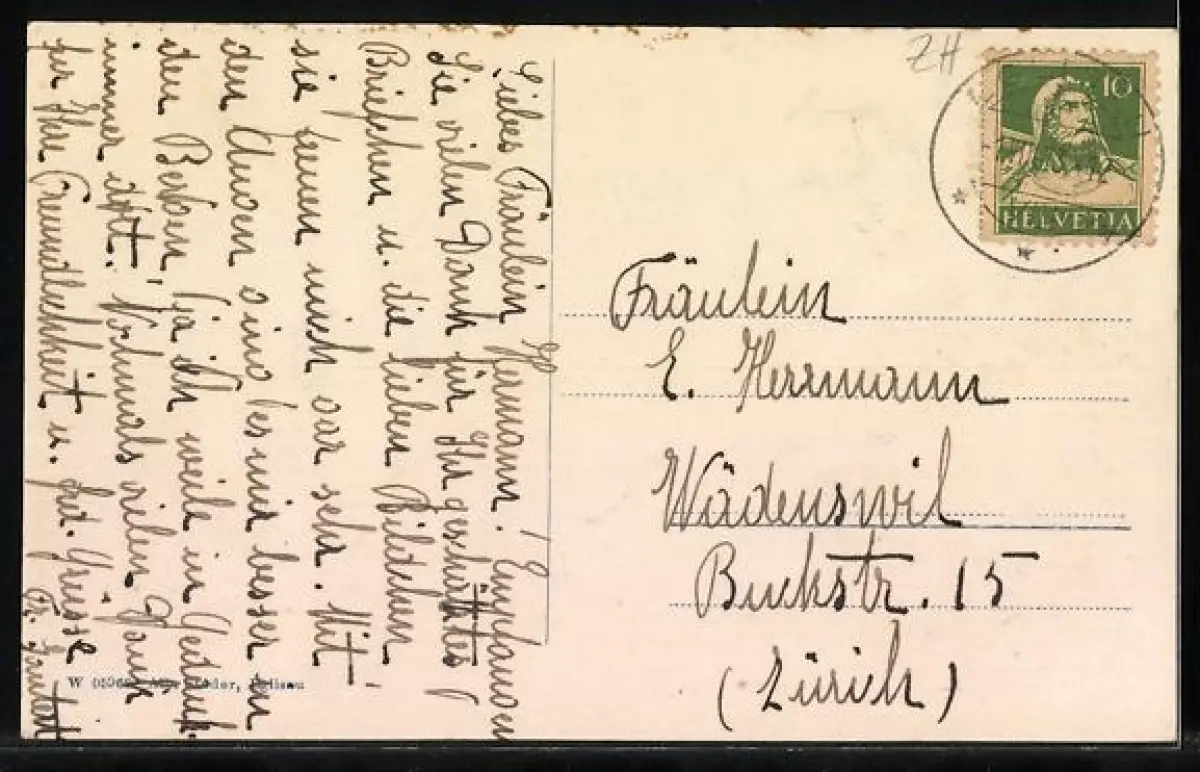 Liebes Fräulein Hermann! Empfangen
Sie vielen Dank für Ihr geschätztes
Briefchen u. die lieben Bildchen
sie freuen mich gar sehr. Mit
den Augen es mir besser in
den Bergen ja ich weile in Gedank-
immer dort! Nochmals vielen Dank
für Ihre Freundlichkeit u. frdl. Grüsse
Fr.
W
ZH
10
HELVETIA
Fräulein
E. Herrmann
Wädenswil
Buckstr. 15
(Zürich)